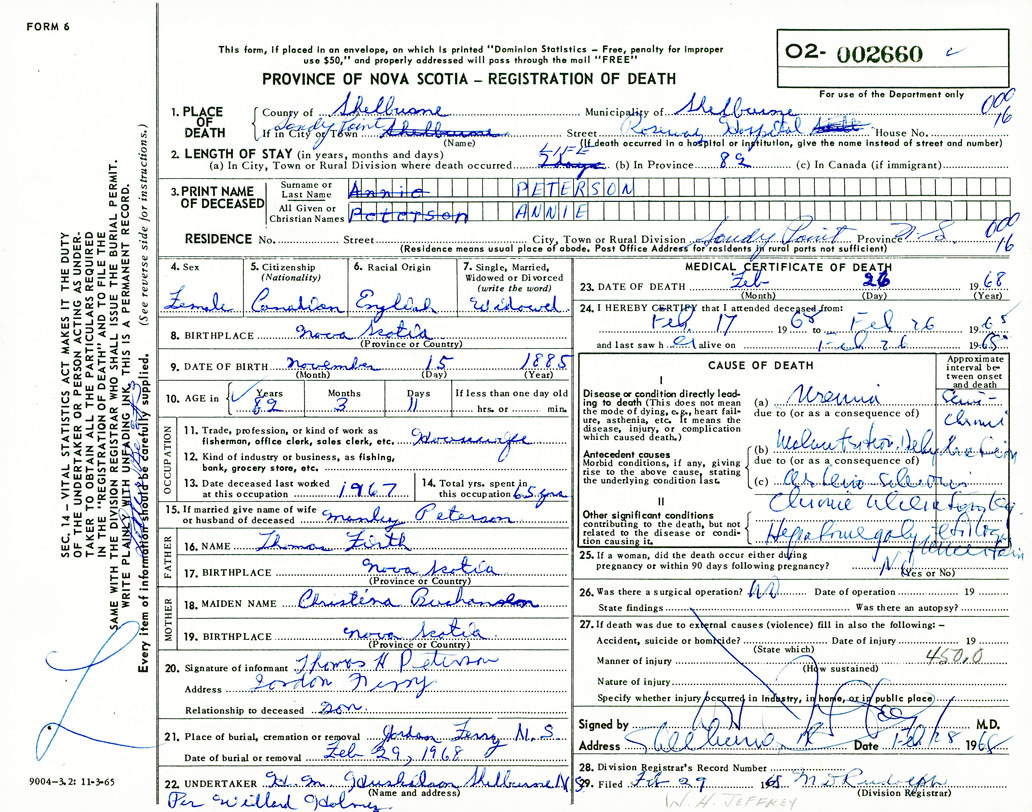 FORM 6
This form, if placed in an envelope, on which is printed "Dominion Statistics – Free, penalty for improper
use $50," and properly addressed will pass through the mail "FREE"
PROVINCE OF NOVA SCOTIA – REGISTRATION OF DEATH
O2- 002660
For use of the Department only
000
16
1. PLACE OF DEATH
County of Shelburne Municipality of Shelburne
If in City or Town Sandy Point Shelburne Street Roseway Hospital House No.
(Name) (If death occurred in a hospital or institution, give the name instead of street and number)
2. LENGTH OF STAY (in years, months and days)
(a) In City, Town or Rural Division where death occurred LIFE (b) In Province 82 (c) In Canada (if immigrant)
3. PRINT NAME OF DECEASED
Surname or Last Name Annie PETERSON
All Given or Christian Names Peterson ANNIE
RESIDENCE No. Street City, Town or Rural Division Sandy Point Province N.S.
(Residence means usual place of abode. Post Office Address for residents in rural parts not sufficient)
000
16
4. Sex Female
5. Citizenship (Nationality) Canadian
6. Racial Origin English
7. Single, Married, Widowed or Divorced (write the word) Widowed
8. BIRTHPLACE Nova Scotia
(Province or Country)
9. DATE OF BIRTH November 15 1885
(Month) (Day) (Year)
10. AGE in Years 82 Months 3 Days 11 If less than one day old hrs. or min.
OCCUPATION
11. Trade, profession, or kind of work as fisherman, office clerk, sales clerk, etc. Housewife
12. Kind of industry or business, as fishing, bank, grocery store, etc.
13. Date deceased last worked at this occupation 1967
14. Total yrs. spent in this occupation 65 yrs
15. If married give name of wife or husband of deceased Manley Peterson
FATHER
16. NAME Thomas Firth
17. BIRTHPLACE Nova Scotia
(Province or Country)
MOTHER
18. MAIDEN NAME Christina Buchanan
19. BIRTHPLACE Nova Scotia
(Province or Country)
20. Signature of informant Thomas H Peterson
Address Jordon Ferry
Relationship to deceased Son
21. Place of burial, cremation or removal Jordan Ferry N.S
Date of burial or removal Feb 29, 1968
22. UNDERTAKER H. M. Shelburne N.S
(Name and address)
Per Willard
MEDICAL CERTIFICATE OF DEATH
23. DATE OF DEATH Feb 26 1968
(Month) (Day) (Year)
24. I HEREBY CERTIFY that I attended deceased from:
Feb. 17 1968 to Feb 26 1968
and last saw her alive on Feb 26 1968
CAUSE OF DEATH
Approximate interval between onset and death
I
Disease or condition directly leading to death (This does not mean the mode of dying, e.g., heart failure, asthenia, etc. It means the disease, injury, or complication which caused death.)
(a) Uremia
due to (or as a consequence of)
Antecedent causes
Morbid conditions, if any, giving rise to the above cause, stating the underlying condition last.
(b) Malnutrition Dehydration
due to (or as a consequence of)
(c)
II
Other significant conditions contributing to the death, but not related to the disease or condition causing it.
Chronic
Hepatomegaly
25. If a woman, did the death occur either during pregnancy or within 90 days following pregnancy? No
(Yes or No)
26. Was there a surgical operation? No Date of operation 19
State findings Was there an autopsy?
27. If death was due to external causes (violence) fill in also the following: –
Accident, suicide or homicide? Date of injury 19
(State which)
Manner of injury 450.0
(How sustained)
Nature of injury
Specify whether injury occurred in industry, in home, or in public place
Signed by M.D.
Address Shelburne, NS Date Feb/28 1968
28. Division Registrar's Record Number
29. Filed Feb 29 1968 M. D. Rudolph
(Division Registrar)
W. H. JEFFREY
SEC. 14 – VITAL STATISTICS ACT MAKES IT THE DUTY
OF THE UNDERTAKER OR PERSON ACTING AS UNDER-
TAKER TO OBTAIN ALL THE PARTICULARS REQUIRED
IN THE "REGISTRATION OF DEATH" AND TO FILE THE
SAME WITH THE DIVISION REGISTRAR WHO SHALL ISSUE THE BURIAL PERMIT.
WRITE PLAINLY WITH UNFADING INK, THIS IS A PERMANENT RECORD.
Every item of information should be carefully supplied. (See reverse side for instructions.)
9004-3.2: 11-3-65